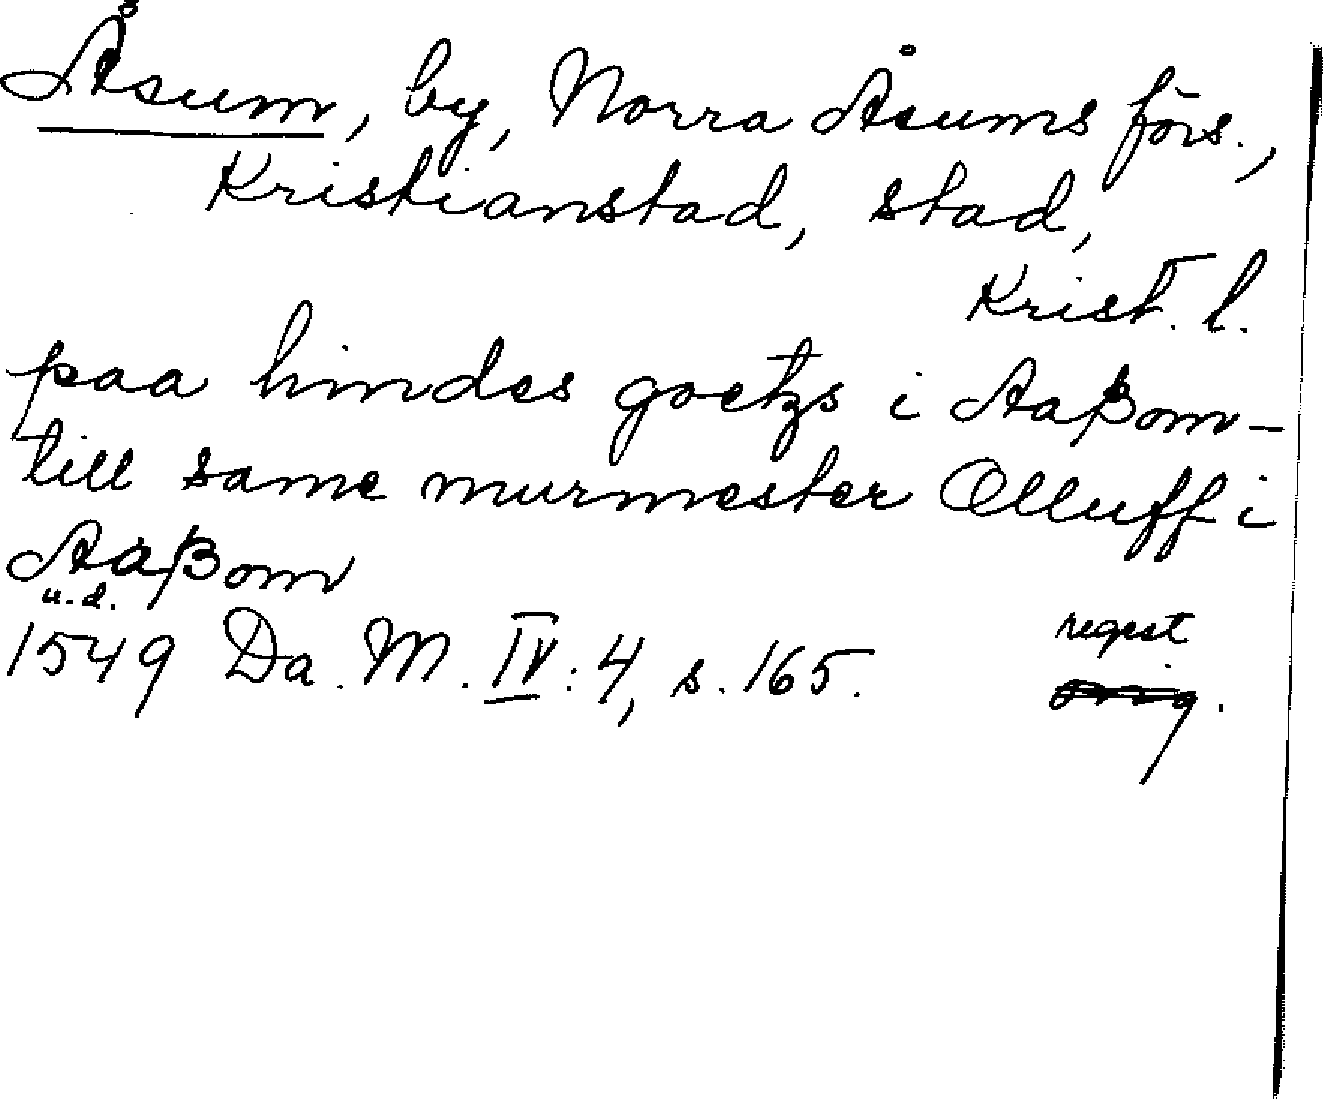 Åsum, by, Norra Åsums förs.,
Kristianstad, stad,
Krist. l.
paa hindes goetzs i Aaßom –
till same murmester Olluff i
Aaßom
u.d.
1549 Da. M. IV: 4, s. 165.
regest
orig.